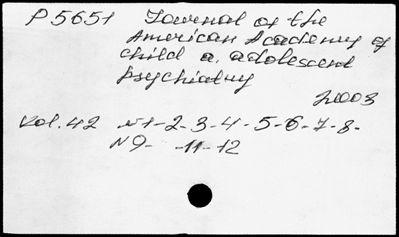 P5651 Journal of the
American Academy of
child a. adolescent
psychiatry
2003
Vol. 42 N1-2-3-4-5-6-7-8-
N9- -11-12